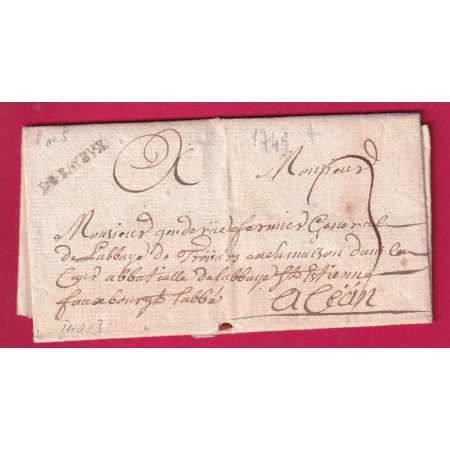 n°5
1749
DE LISIEUX
A
Monsieur
3
Monsieur gouderüe fermier General
de Labbaye de Troiars en sa maison dans la
Cour abbatialle de labbaye St Etienne
fauxbourg labbé
a Cäen
IND 13